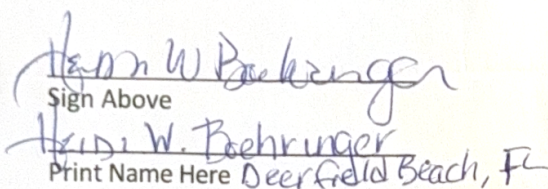 Heidi W Boehringer
Sign Above
Heidi W. Boehringer
Print Name Here Deerfield Beach, FL